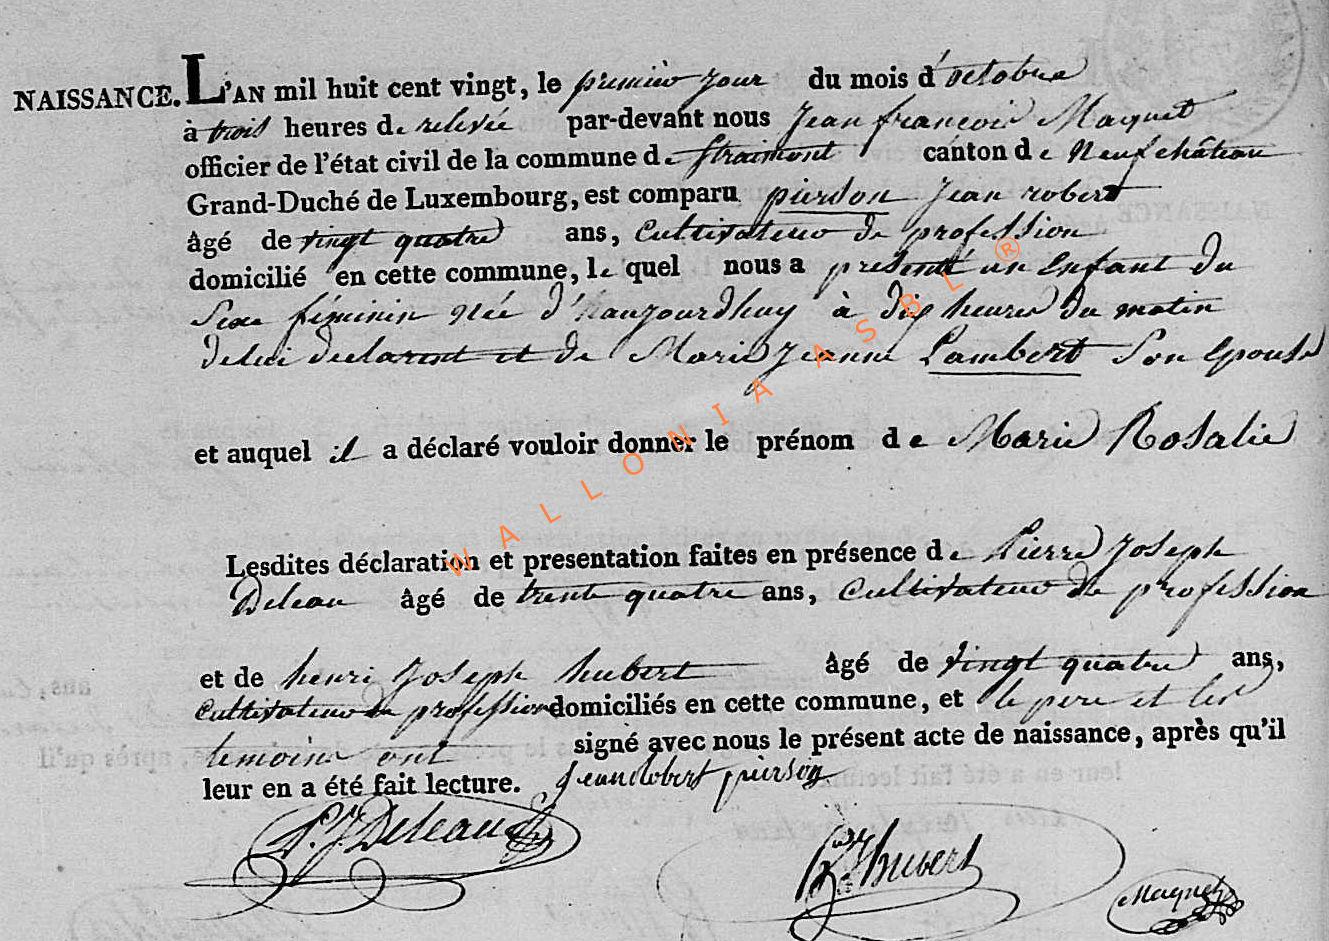 NAISSANCE. L'AN mil huit cent vingt, le premier jour du mois d'octobre
à trois heures de relevée par-devant nous Jean françois Maquet
officier de l'état civil de la commune de Straimont canton de Neufchâteau
Grand-Duché de Luxembourg, est comparu pierson Jean robert
âgé de vingt quatre ans, cultivateur de profession
domicilié en cette commune, le quel nous a présenté un enfant du
Sexe féminin née d'haujourdhuy à dix heures du matin
de lui declarent et de Marie Jeanne Lambert Son epouse
et auquel il a déclaré vouloir donner le prénom de Marie Rosalie
Lesdites déclaration et presentation faites en présence de Pierre Joseph
Deleau âgé de trente quatre ans, cultivateur de profession
et de henri Joseph hubert âgé de vingt quatre ans,
cultivateur de profession domiciliés en cette commune, et le pere et les
temoins ont signé avec nous le présent acte de naissance, après qu'il
leur en a été fait lecture. Jean robert pierson
P. J. Deleau
h. J. hubert
Maquet
WALLONIA ASBL ®